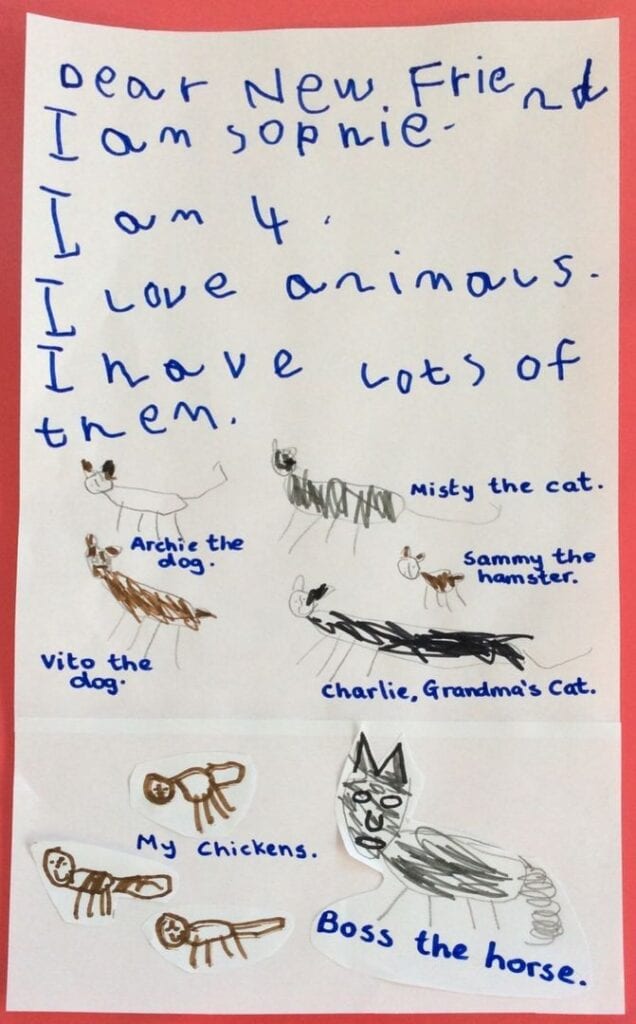 Dear New Friend
I am Sophie.
I am 4.
I love animals.
I have lots of
them.
Misty the cat.
Archie the
dog.
Sammy the
hamster.
Vito the
dog.
Charlie, Grandma's Cat.
My Chickens.
Boss the horse.